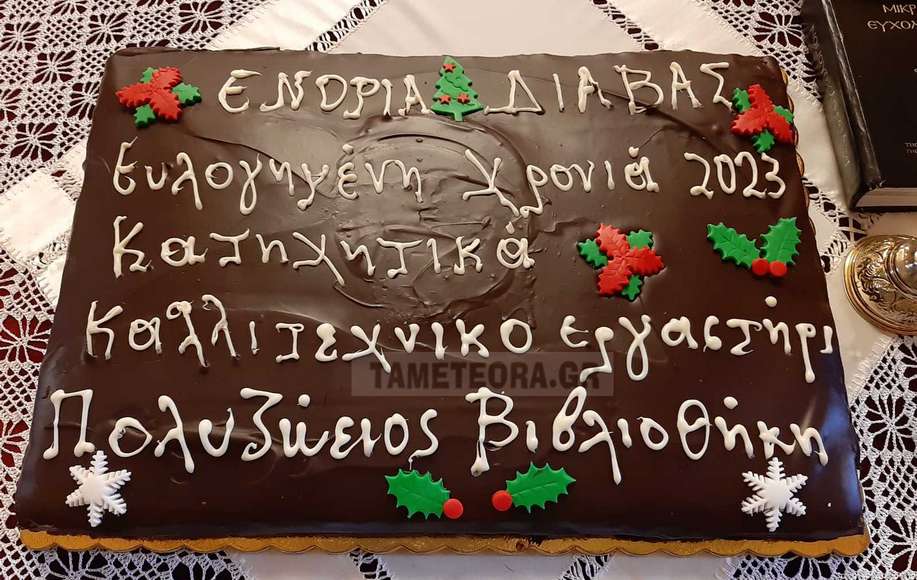 ΕΝΟΡΙΑ ΔΙΑΒΑΣ
Ευλογημένη χρονιά 2023
Κατηχητικά
Καλλιτεχνικο εργαστήρι
Πολυζώειος Βιβλιοθήκη
TAMETEORA.GR
ΜΙΚΡ
ΕΥΧΟΛ